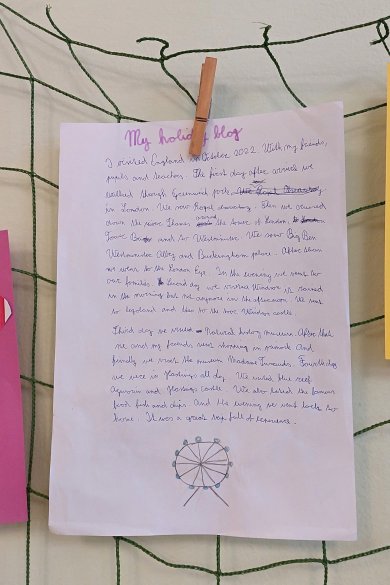 My holiday blog
I visited England in October 2022. With my friends,
pupils and teachers. The first day after arrive we
walked though Greenwich park
in London. We saw Royal observatory. Then we cruised
down the river Thames around the tower of London
Tower and to Westminster. We saw Big Ben
Westminster Abbey and Buckingham palace. After them
we went to the London Eye. In the evening we went to
our families. Second day we visited Windsor it rained
in the morning but not anymore in the afternoon. We went
to legoland and then to the Windsor castle.
Third day we visited Natural history museum. After that
me and my friends went shopping in primark. And
finally we visit the museum Madame Tussauds. Fourth day
we were in Hastings all day. We visited blue reef
Aquarium and Hastings castle. We also tasted the famous
food fish and chips. And this evening we went back to
home. It was a great trip full of experience.